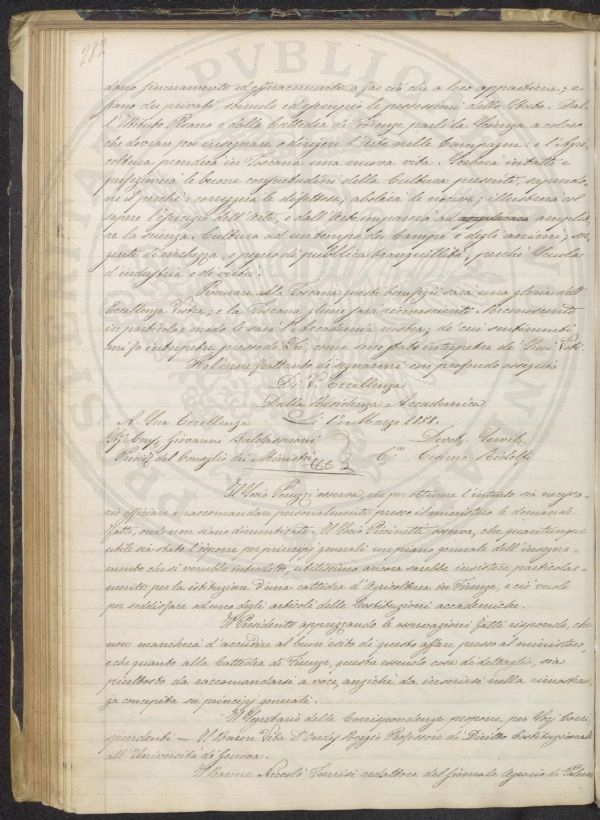 282
dano sinceramente ed efficacemente a far ciò che a loro appartiene; e
siano dei privati stimolo ed esempio le possessioni dello Stato. Dal-
l'Istituto Pisano e dalla Cattedra di Firenze parli la Scienza a coloro
che dovran poi insegnare o dirigere l'Arte nelle Campagne: e l'Agri-
coltura prenderà in Toscana una nuova vita. Serberà intatte e
perfezionerà le buone consuetudini della Cultura presente, sapendo-
ne il perchè: correggerà le difettose; abolirà le nocive; illustrerà col
sapere l'esercizio dell'Arte, e dall'Arte imparerà ad amplia-
re la scienza. Cultura ad un tempo dei Campi e degli animi; sor-
gente di ricchezza, e pegno di pubblica tranquillità, perchè Scuola
d'industria e di virtù.
Procurare alla Toscana questi benefizii sarà una gloria dell'
Eccellenza Vostra; e la Toscana gliene sarà riconoscente. Riconoscente
in particolar modo le sarà l'Accademia nostra; de' cui sentimenti
mi fo interprete presso di Lei, come sono stato interprete de' Suoi Voti.
Ho l'onore frattanto di segnarmi con profondo ossequio
Di V. Eccellenza
Dalla Residenza Accademica
A Sua Eccellenza Lì 1° Marzo 1858.
Sig. Cav. Giovanni Baldasseroni Devot. Servit.
Presid. del Consiglio dei Ministri C. Cosimo Ridolfi
Il Socio Peruzzi osserva, che per ottenere l'intento sia necessa-
rio officiare e raccomandare personalmente presso il ministero le domande
fatte, onde non siano dimenticate. Il Socio osserva, che quantunque
utile sia stato l'esporre per principj generali un piano generale dell'insegna-
mento che si vorrebbe introdotto, utilissimo ancora sarebbe insistere particolar-
mente per la istituzione d'una cattedra d'Agricoltura in Firenze, e ciò anche
per soddisfare ad uno degli articoli delle Costituzioni accademiche.
Il Presidente apprezzando le osservazioni fatte risponde, che
non mancherà d'accudire al buon esito di questo affare presso al ministero,
e che quanto alla Cattedra di Firenze, questa essendo cosa di dettaglio, sia
piuttosto da raccomandarsi a voce, anzichè da inserirsi nella rimostran-
za concepita su principj generali.
Il Segretario delle Corrispondenze propone per Socj Corri-
spondenti — Il Barone Vito D'Ondes Reggio Professore di Diritto Costituzionale
all'Università di Genova.
Il Barone Niccolò Turrisi redattore del Giornale Agrario di Palermo